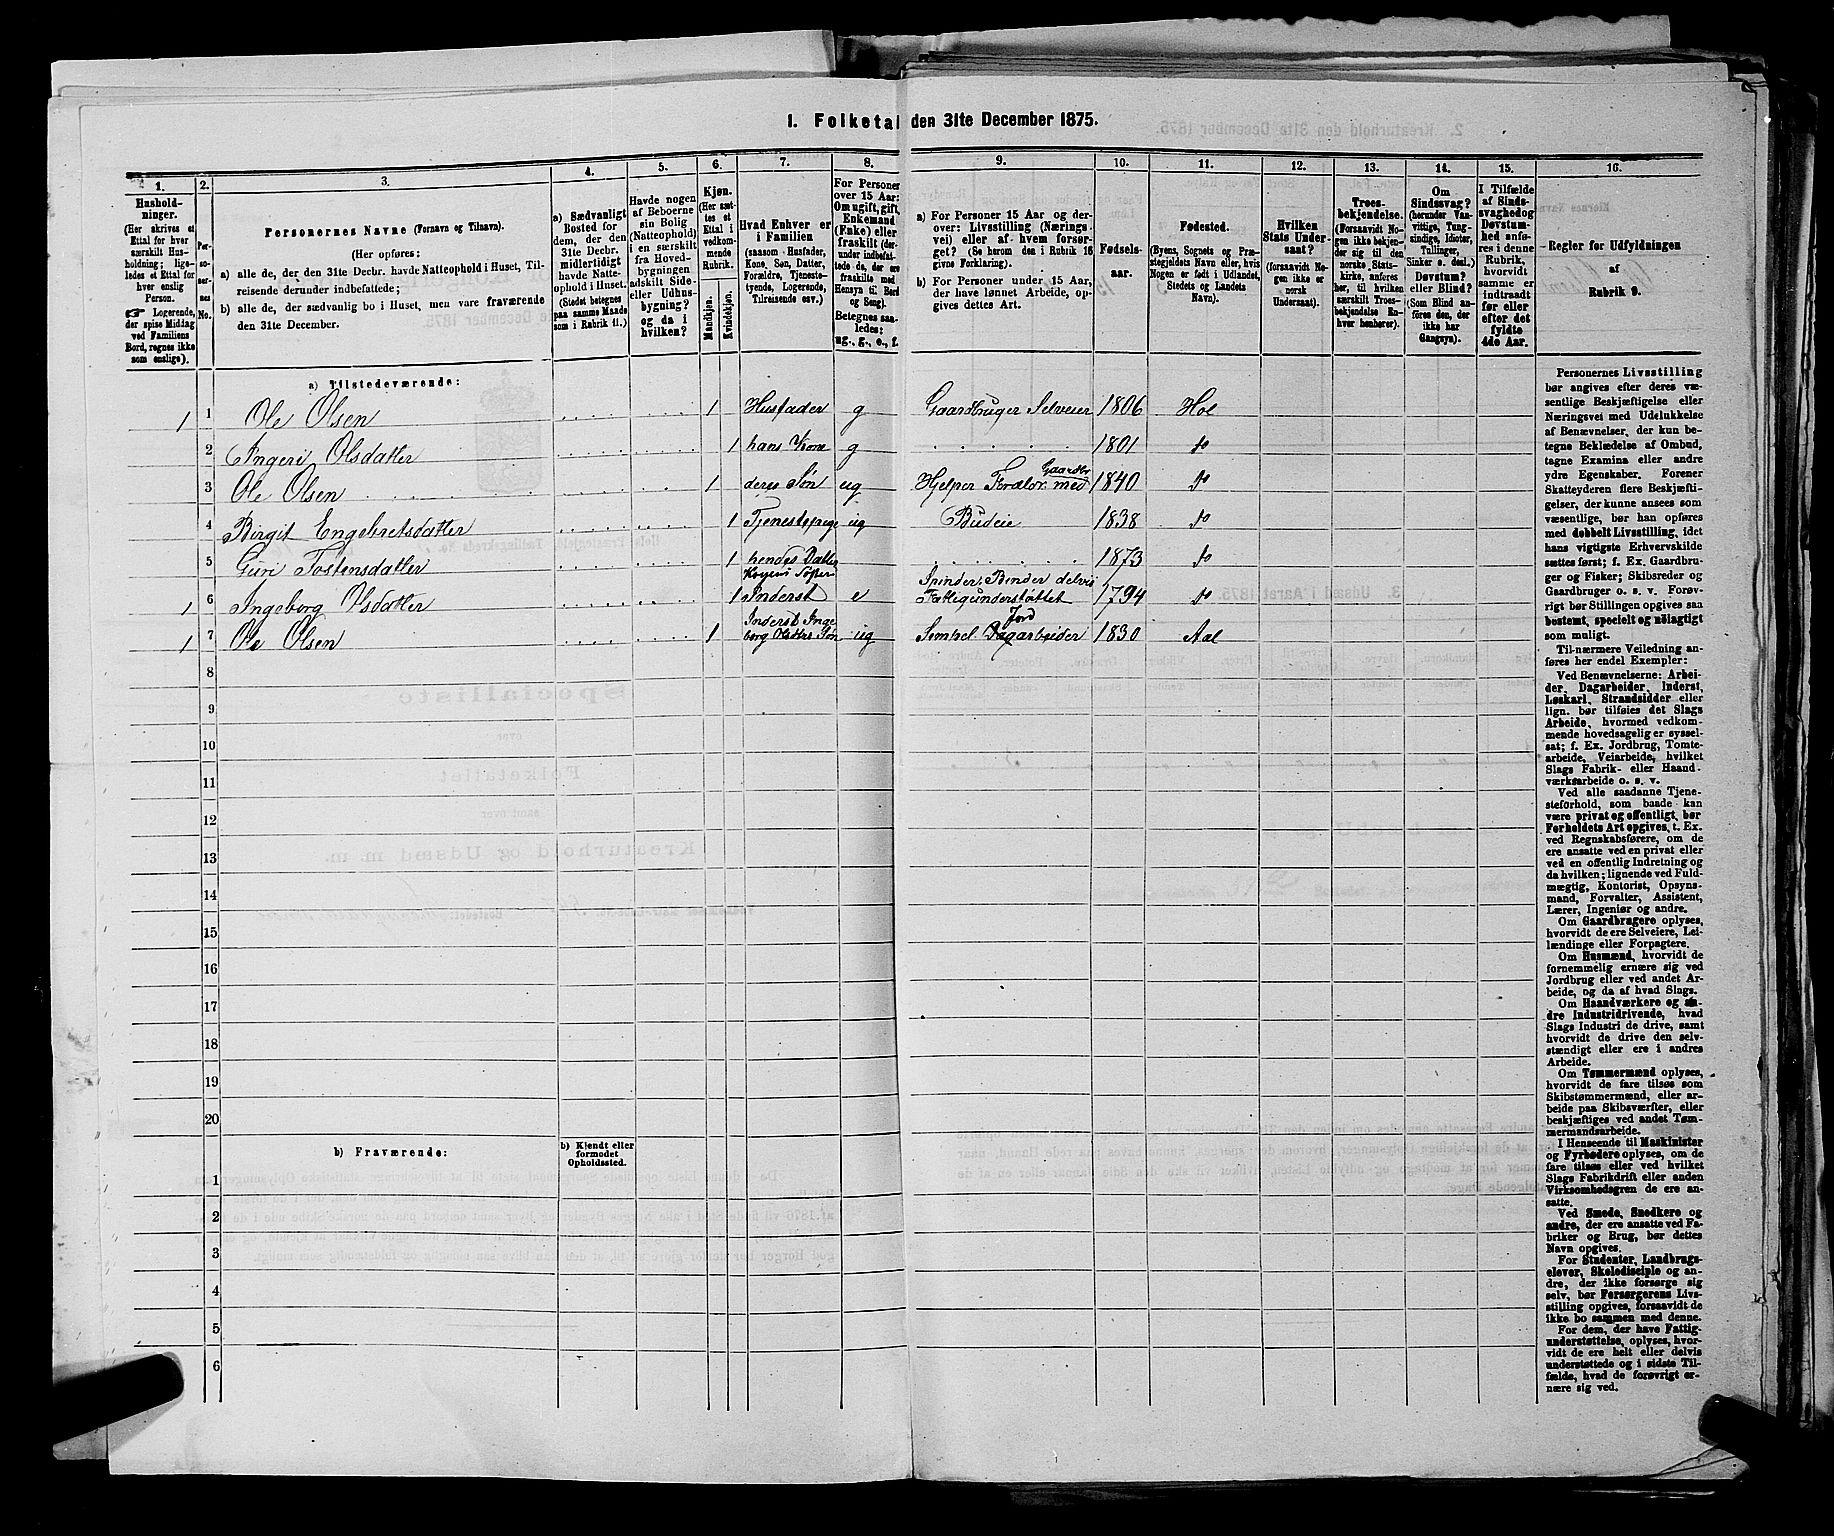 1. Folketal den 31te December 1875.
1.
Hushold-
ninger.
(Her skrives et
Ettal for hver
særskilt Hus-
holdning; lige-
ledes et Ettal for
hver enslig
Person.
☞ Logerende,
der spise Middag
ved Familiens
Bord, regnes ikke
som enslige).
2.
Per-
so-
ner-
nes
No.
3.
Personernes Navne (Fornavn og Tilnavn).
(Her opføres:
a) alle de, der den 31te Decbr. havde Natteophold i Huset, Til-
reisende derunder indbefattede;
b) alle de, der sædvanlig bo i Huset, men vare fraværende
den 31te December.
4.
a) Sædvanligt
Bosted for
dem, der den
31te Decbr.
midlertidigt
havde Natte-
ophold i Huset.
(Stedet betegnes
paa samme Maade
som i Rubrik 11.)
5.
Havde nogen
af Beboerne
sin Bolig
(Natteophold)
i en særskilt
fra Hoved-
bygningen
adskilt Side-
eller Udhus-
bygning?
og da i
hvilken?
6.
Kjøn.
(Her sæt-
tes et
Ettal i
vedkom-
mende
Rubrik.
Mandkjøn.
Kvindekjøn.
7.
Hvad Enhver er
i Familien
(saasom Husfader,
Kone, Søn, Datter,
Forældre, Tjeneste-
tyende, Logerende,
Tilreisende osv.)
8.
For Personer
over 15 Aar:
Om ugift, gift,
Enkemand
(Enke) eller
fraskilt (der-
under indbefat-
tede de, der ere
fraskilte med
Hensyn til Bord
og Seng).
Betegnes saa-
ledes:
ug., g., e., f.
9.
a) For Personer 15 Aar og der-
over: Livsstilling (Nærings-
vei) eller af hvem forsør-
get? (Se herom den i Rubrik 16
givne Forklaring).
b) For Personer under 15 Aar,
der have lønnet Arbeide, op-
gives dettes Art.
10.
Fødsels-
aar.
11.
Fødested.
(Byens, Sognets og Præ-
stegjeldets Navn eller, hvis
Nogen er født i Udlandet,
Stedets og Landets
Navn).
12.
Hvilken
Stats Under-
saat?
(forsaavidt No-
gen ikke er
norsk
Undersaat).
13.
Troes-
bekjendelse.
(Forsaavidt Nogen
ikke bekjen-
der sig til den
norske Stats-
kirke, anføres
her, til hvilken
særskilt Troes-
bekjendelse En-
hver henhører).
14.
Om
Sindssvag?
(herunder Van-
vittige, Tung-
sindige, Idioter,
Tullinger,
Sinker o. desl.).
Døvstum?
eller Blind?
(Som Blind an-
føres den, der
ikke har
Gangsyn).
15.
I Tilfælde
af Sinds-
svaghed og
Døvstum-
hed anfø-
res i denne
Rubrik,
hvorvidt
samme er
indtraadt
før eller
efter det
fyldte
4de Aar.
16.
Regler for Udfyldningen
af
Rubrik 9.
a) Tilstedeværende:
1 1 Ole Olsen 1 Husfader g Gaardbruger Selveier 1806 Hol
2 Ingeri Olsdatter 1 hans Kone g 1801 do
3 Ole Olsen 1 deres Søn ug Hjelper Foræld. med Gaardbr 1840 do
4 Birgit Engebretsdatter 1 Tjenestepige ug Budeie 1838 do
5 Guri Tostensdatter 1 hendes Datter 1873 do
1 6 Ingeborg Olsdatter 1 Konens Søster Inderst e Spinder, Binder delvis Fattigunderstøttet 1794 do
1 7 Ole Olsen 1 Inderst Ingeborg Olsdtrs Søn ug Simpel Jord Dagarbeider 1830 Aal
8
9
10
11
12
13
14
15
16
17
18
19
20
b) Fraværende:
b) Kjendt eller
formodet
Opholdssted.
1
2
3
4
5
6
Personernes Livsstilling
bør angives efter deres væ-
sentlige Beskjæftigelse eller
Næringsvei med Udelukkelse
af Benævnelser, der kun be-
tegne Beklædelse af Ombud,
tagne Examina eller andre
ydre Egenskaber. Forener
Skatteyderen flere Beskjæfti-
gelser, der kunne ansees som
væsentlige, bør han opføres
med dobbelt Livsstilling, idet
hans vigtigste Erhvervskilde
sættes først; f. Ex. Gaardbru-
ger og Fisker; Skibsreder og
Gaardbruger o. s. v. Forøv-
rigt bør Stillingen opgives saa
bestemt, specielt og nøiagtigt
som muligt.
Til nærmere Veiledning an-
føres her endel Exempler:
Ved Benævnelserne: Arbei-
der, Dagarbeider, Inderst,
Løskarl, Strandsidder eller
lign. bør tilføies det Slags
Arbeide, hvormed vedkom-
mende hovedsagelig er syssel-
sat; f. Ex. Jordbrug, Tomte-
arbeide, Veiarbeide, hvilket
Slags Fabrik- eller Haand-
værksarbeide o. s. v.
Ved alle saadanne Tjene-
steforhold, som baade kan
være privat og offentligt, bør
Forholdets Art opgives, t. Ex.
ved Regnskabsførere, om de
ere ansatte ved en privat eller
ved en offentlig Indretning og
da hvilken; lignende ved Fuld-
mægtig, Kontorist, Opsyns-
mand, Forvalter, Assistent,
Lærer, Ingeniør og andre.
Om Gaardbrugere oplyses,
hvorvidt de ere Selveiere, Lei-
lændinge eller Forpagtere.
Om Husmænd, hvorvidt de
fornemmelig ernære sig ved
Jordbrug eller ved andet Ar-
beide, og da af hvad Slags.
Om Haandværkere og an-
dre Industridrivende, hvad
Slags Industri de drive, samt
hvorvidt de drive den selv-
stændigt eller ere i andres
Arbeide.
Om Tømmermænd oplyses,
hvorvidt de fare tilsøs som
Skibstømmermænd, eller ar-
beide paa Skibsværfter, eller
beskjæftiges ved andet Tøm-
mermandsarbeide.
I Henseende til Maskinister
og Fyrbødere oplyses, om de
fare tilsøs eller ved hvilket
Slags Fabrikdrift eller anden
Virksomhedsgren de ere an-
satte.
Ved Smede, Snedkere og
andre, der ere ansatte ved Fa-
briker og Brug, bør dettes
Navn opgives.
For Studenter, Landbrugs-
elever, Skoledisciple og an-
dre, der ikke forsørge sig
selv, bør Forsørgerens Livs-
stilling opgives, forsaavidt de
ikke bo sammen med denne.
For dem, der have Fattig-
understøttelse, oplyses, hvor-
vidt de ere helt eller delvis
understøttede og i sidste Til-
fælde, hvad de forøvrigt er-
nære sig ved.